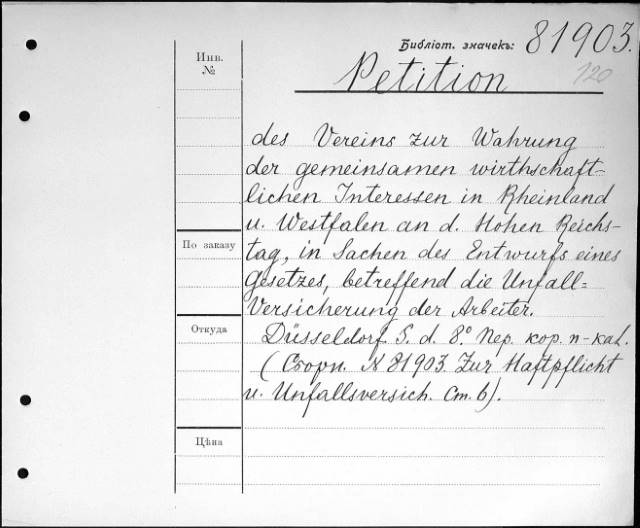 Библіот. значекъ: 81903.
120
Petition
Инв.
№
des Vereins zur Wahrung
der gemeinsamen wirthschaft-
lichen Interessen in Rheinland
u. Westfalen an d. Hohen Reichs-
По заказу
tag, in Sachen des Entwurfs eines
Gesetzes, betreffend die Unfall-
Versicherung der Arbeiter.
Откуда
Düsseldorf. S. d. 8° Пер. кор. п-каl.
(Сборн. № 81903. Zur Haftpflicht
u. Unfallsversich. Ст. 6).
Цѣна